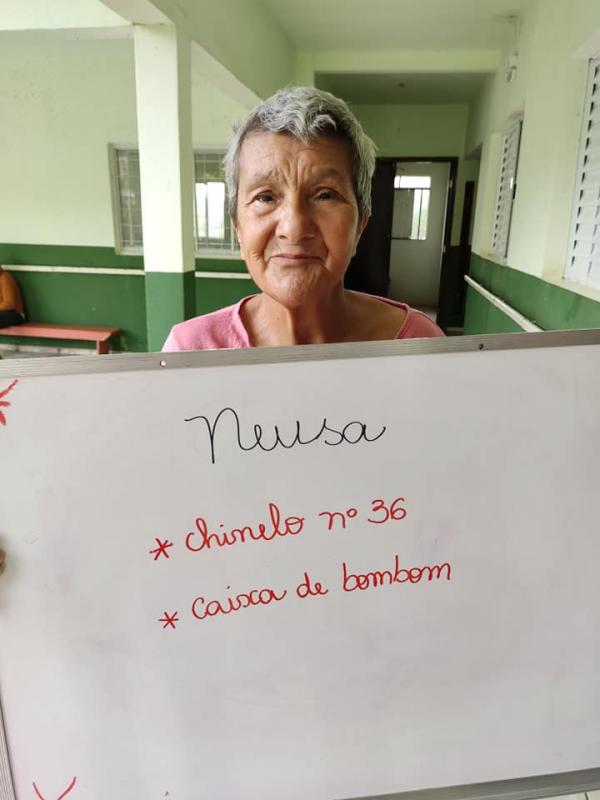 Neusa
* chinelo nº 36
* caixa de bombom